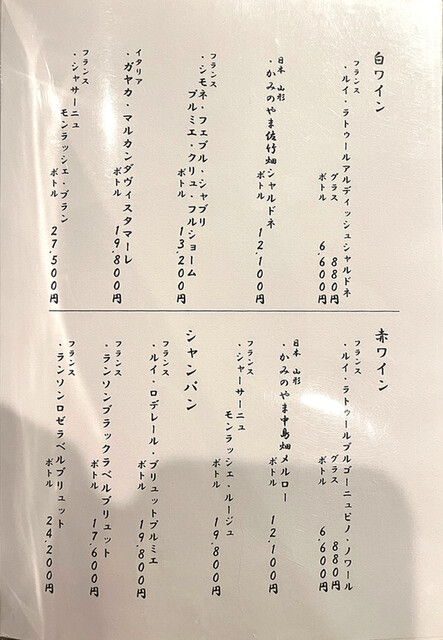 白ワイン
フランス
・ルイ・ラトゥールアルディッシュシャルドネ
グラス 880円
ボトル 6.600円
日本 山形
・かみのやま佐竹畑シャルドネ
ボトル 12.100円
フランス
・シモネ・フェブル・シャブリ
プルミエ・クリュ・フルショーム
ボトル 13.200円
イタリア
・ガヤカ・マルカンダヴィスタマーレ
ボトル 19.800円
フランス
・シャサーニュ
モンラッシェ・ブラン
ボトル 27.500円
赤ワイン
フランス
・ルイ・ラトゥールブルゴーニュピノ・ノワール
グラス 880円
ボトル 6.600円
日本 山形
・かみのやま中島畑メルロー
ボトル 12.100円
フランス
・シャーサーニュ
モンラッシェ・ルージュ
ボトル 19.800円
シャンパン
フランス
・ルイ・ロデレール・ブリュットプルミエ
ボトル 19.800円
フランス
・ランソンブラックラベルブリュット
ボトル 17.600円
フランス
・ランソンロゼラベルブリュット
ボトル 24.200円